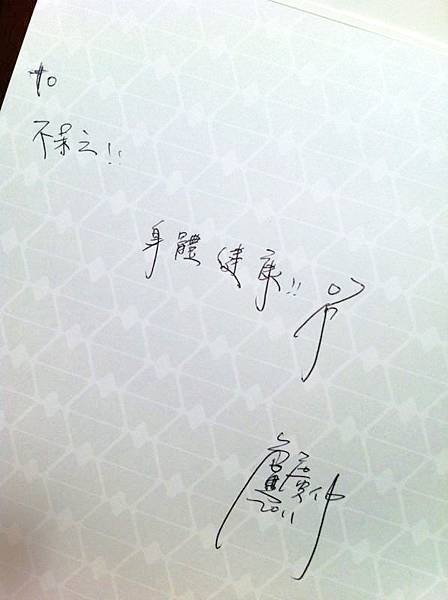 to
不呆之!!
身體健康!!
盧廣仲
2011